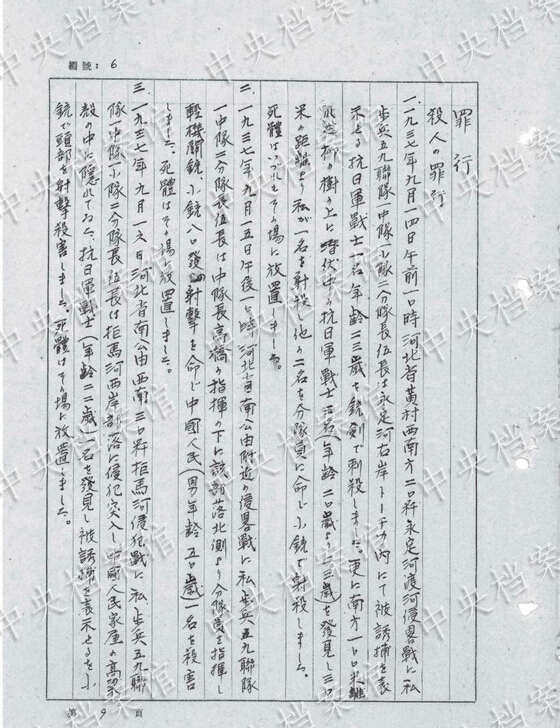 編號: 6
罪行
殺人の罪行
一、一九三七年九月一四日午前一〇時河北省黄村西南方二〇粁永定河渡河侵畧戦に私
歩兵五九聯隊一中隊一小隊二分隊長伍長は永定河右岸トーチカ内にて被誘捕を表
示せる抗日軍戦士一名(年齢二三歳を銃剣で刺殺しました。更に南方一〇〇米離
柳の樹の上に潜伏中の抗日軍戦士三名(年齢二〇歳より二三歳)を發見し三〇
米の距離より私が一名を射殺、他の二名を分隊員に命じ小銃で射殺しました。
死體はいづれもその場に放置しました。
二、一九三七年九月一五日午後一〇時河北省南公由附近の侵畧戦に私歩兵五九聯隊
一中隊二分隊長伍長は中隊長高橋の指揮の下に該部落北測より分隊員を指揮し
輕機関銃、小銃八〇發の射撃を命じ中國人民(男年齢五〇歳)一名を殺害
しました。死體はその場に放置しました。
三、一九三七年九月一六日河北省南公由西南三〇粁拒馬河侵犯戦に私歩兵五九聯
隊一中隊一小隊二分隊長伍長は拒馬河西岸部落に侵犯突入し中國人民家屋の高粱
殻の中に隠れてゐた抗日軍戦士(年齢二二歳)一名を發見し被誘捕を表示せるを小
銃で頭部を射撃殺害しました。死體はその場に放置しました。
第 9 頁
中央档案馆